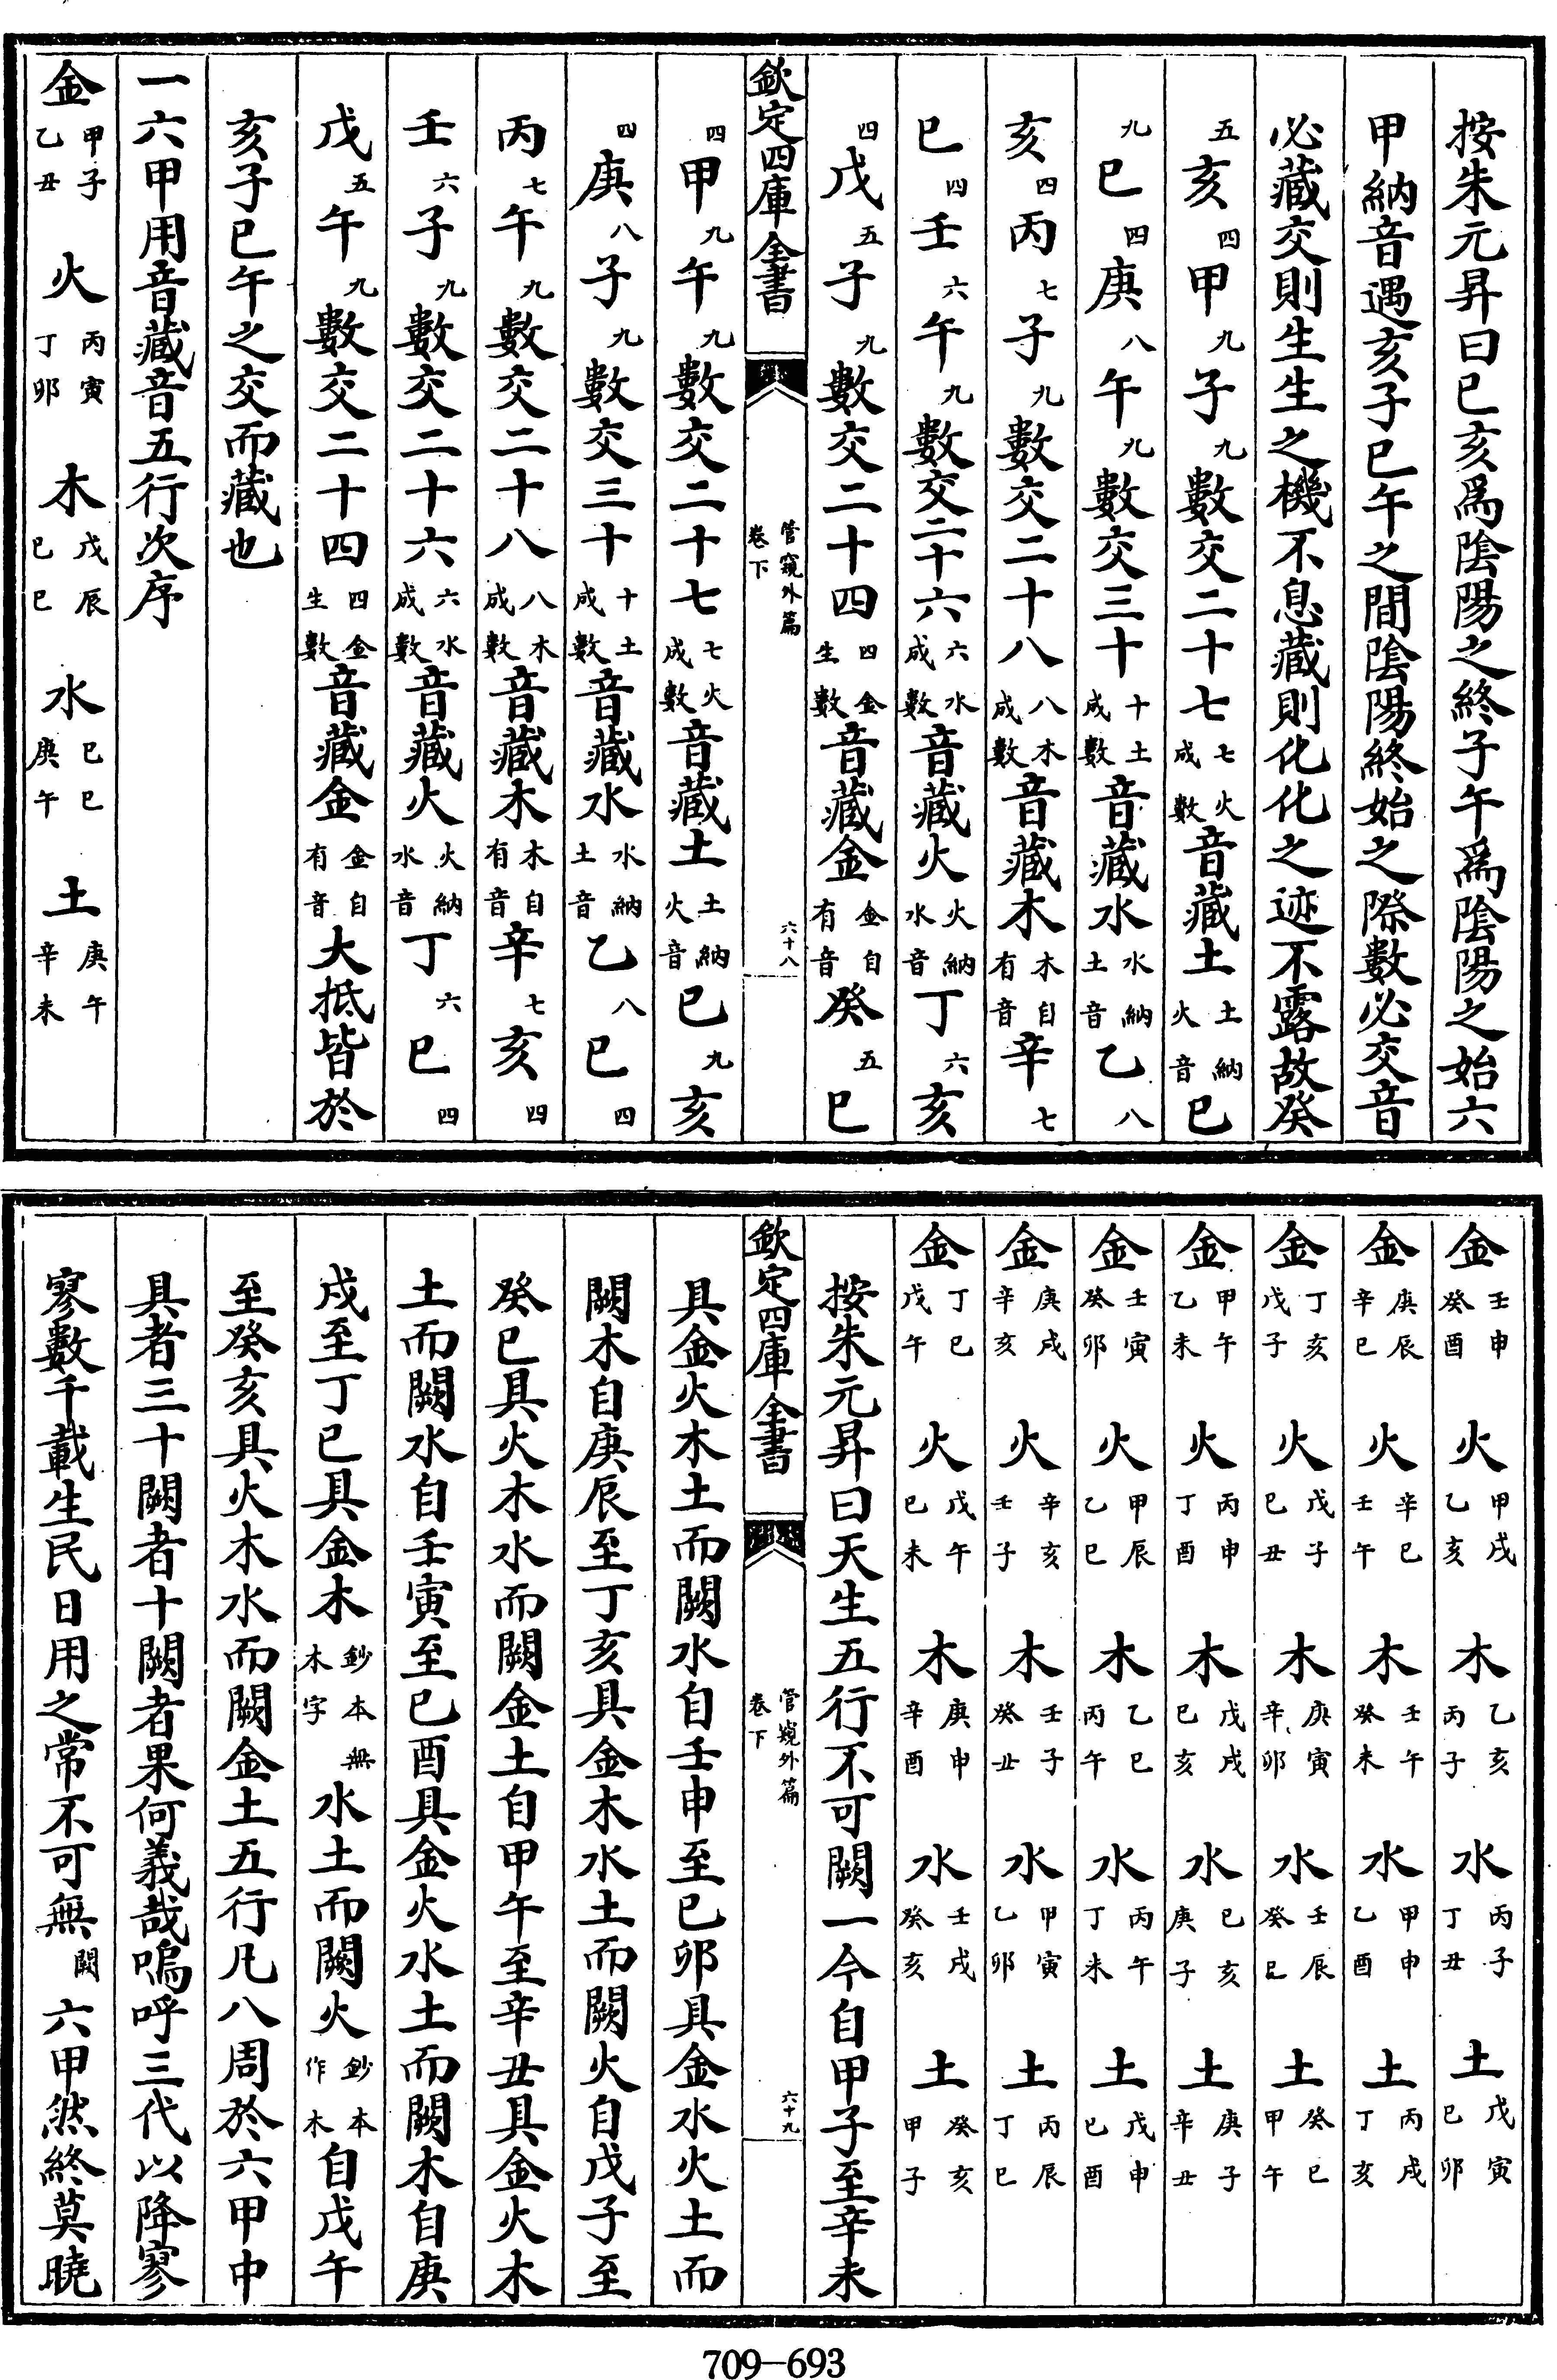 按朱元昇曰巳亥爲陰陽之終子午爲陰陽之始六
甲納音遇亥子巳午之間陰陽終始之際數必交音
必藏交則生生之機不息藏則化化之迹不露故癸
五亥四甲九子九數交二十七七火成數音藏土土納火音巳
九巳四庚八午九數交三十十土成數音藏水水納土音乙八
亥四丙七子九數交二十八八木成數音藏木木自有音辛七
巳四壬六午九數交二十六六水成數音藏火火納水音丁六亥
四戊五子九數交二十四四金生數音藏金金自有音癸五巳
欽定四庫全書
管窺外篇
卷下
六十八
四甲九午九數交二十七七火成數音藏土土納火音巳九亥
四庚八子九數交三十十土成數音藏水水納土音乙八巳四
丙七午九數交二十八八木成數音藏木木自有音辛七亥四
壬六子九數交二十六六水成數音藏火火納水音丁六巳四
戊五午九數交二十四四金生數音藏金金自有音大抵皆於
亥子巳午之交而藏也
一六甲用音藏音五行次序
金甲子乙丑 火丙寅丁卯 木戊辰巳巳 水巳巳庚午 土庚午辛未
金壬申癸酉 火甲戌乙亥 木乙亥丙子 水丙子丁丑 土戊寅巳卯
金庚辰辛巳 火辛巳壬午 木壬午癸未 水甲申乙酉 土丙戌丁亥
金丁亥戊子 火戊子巳丑 木庚寅辛卯 水壬辰癸巳 土癸巳甲午
金甲午乙未 火丙申丁酉 木戊戌巳亥 水巳亥庚子 土庚子辛丑
金壬寅癸卯 火甲辰乙巳 木乙巳丙午 水丙午丁未 土戊申巳酉
金庚戌辛亥 火辛亥壬子 木壬子癸丑 水甲寅乙卯 土丙辰丁巳
金丁巳戊午 火戊午巳未 木庚申辛酉 水壬戌癸亥 土癸亥甲子
按朱元昇曰天生五行不可闕一今自甲子至辛未
欽定四庫全書
管窺外篇
卷下
六十九
具金火木土而闕水自壬申至巳卯具金水火土而
闕木自庚辰至丁亥具金木水土而闕火自戊子至
癸巳具火木水而闕金土自甲午至辛丑具金火木
土而闕水自壬寅至巳酉具金火水土而闕木自庚
戌至丁巳具金木鈔本無木字水土而闕火鈔本作木自戊午
至癸亥具火木水而闕金土五行凡八周於六甲中
具者三十闕者十闕者果何義哉嗚呼三代以降寥
寥數千載生民日用之常不可無闕六甲然終莫曉
709-693